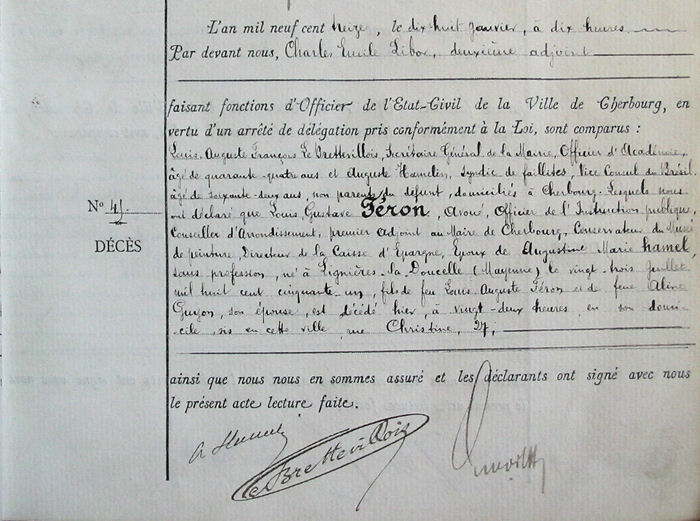 L'an mil neuf cent treize, le dix huit Janvier, à dix heures
Par devant nous, Charles Emile Libor, deuxième adjoint
faisant fonctions d'Officier de l'Etat-Civil de la Ville de Cherbourg, en
vertu d'un arrêté de délégation pris conformément à la Loi, sont comparus :
Louis Auguste François Le Brettevillois, Secrétaire Général de la Mairie, Officier d'Académie,
âgé de quarante-quatre ans et Auguste Hamelin, syndic de faillites, Vice Consul du Brésil
âgé de soixante-deux ans, non parents du défunt, domiciliés à Cherbourg. Lesquels nous
ont déclaré que Louis Gustave Féron, Avoué, Officier de l'Instruction publique,
Conseiller d'Arrondissement, premier adjoint au Maire de Cherbourg, Conservateur du Musée
de peinture, Directeur de la Caisse d'Epargne, Epoux de Augustine Marie hamel,
sans profession, né à Lignières-la-Doucelle (Mayenne) le vingt-trois Juillet
mil huit cent cinquante-un, fils de feu Louis Auguste Féron et de feue Aline
Guyon, son épouse, est décédé hier, à vingt-deux heures, en son domi-
cile, sis en cette ville, rue Christine, 27;
N° 41
DÉCÈS
ainsi que nous nous en sommes assuré et les déclarants ont signé avec nous
le présent acte lecture faite.
Le Brettevillois